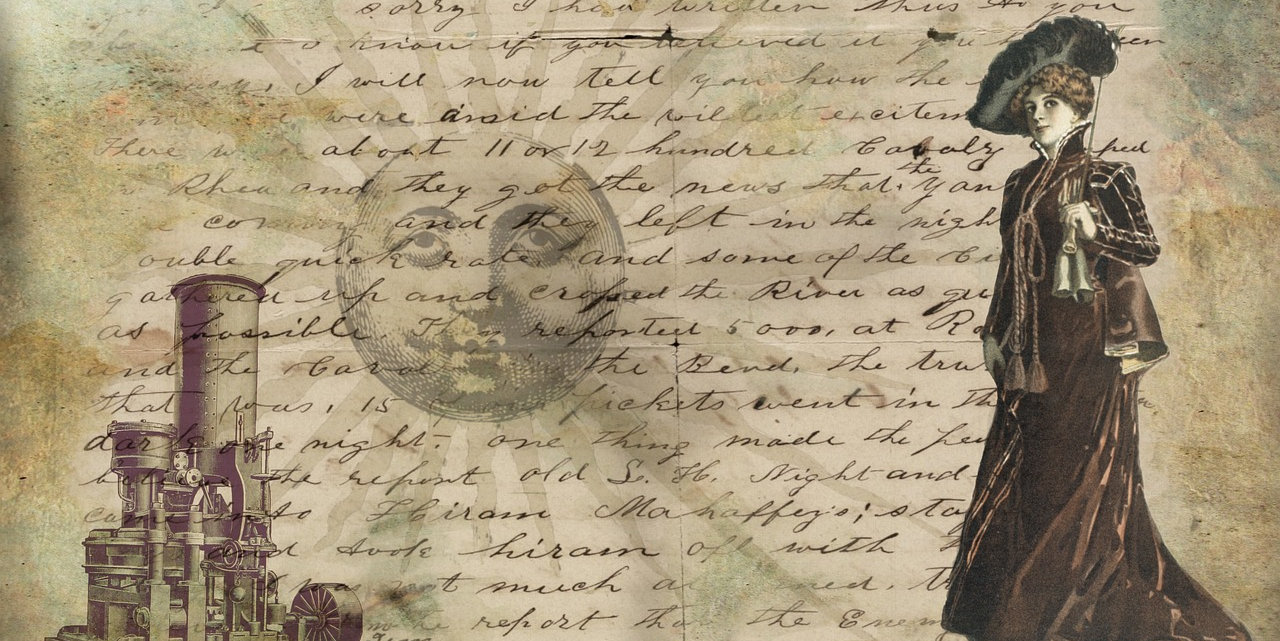 sorry I had written thus to you
to know if you received it
I will now tell you how the
were amid the wildest excitem
There about 11 or 12 hundred Cavalry ped
Rhea and they got the news that the Yan
and they left in the nigh
ouble quick rate and some of the
gathered up and crossed the River as qu
as possible. They reported 5000, at
and the Caval in the Bend, the tru
that was, 15 Pickets went in th
dark one night - one thing made the peo
the report old S. H. Night and
came into Hiram Mahaffey's; sta
and took hiram off with
not much
report tha the Enem